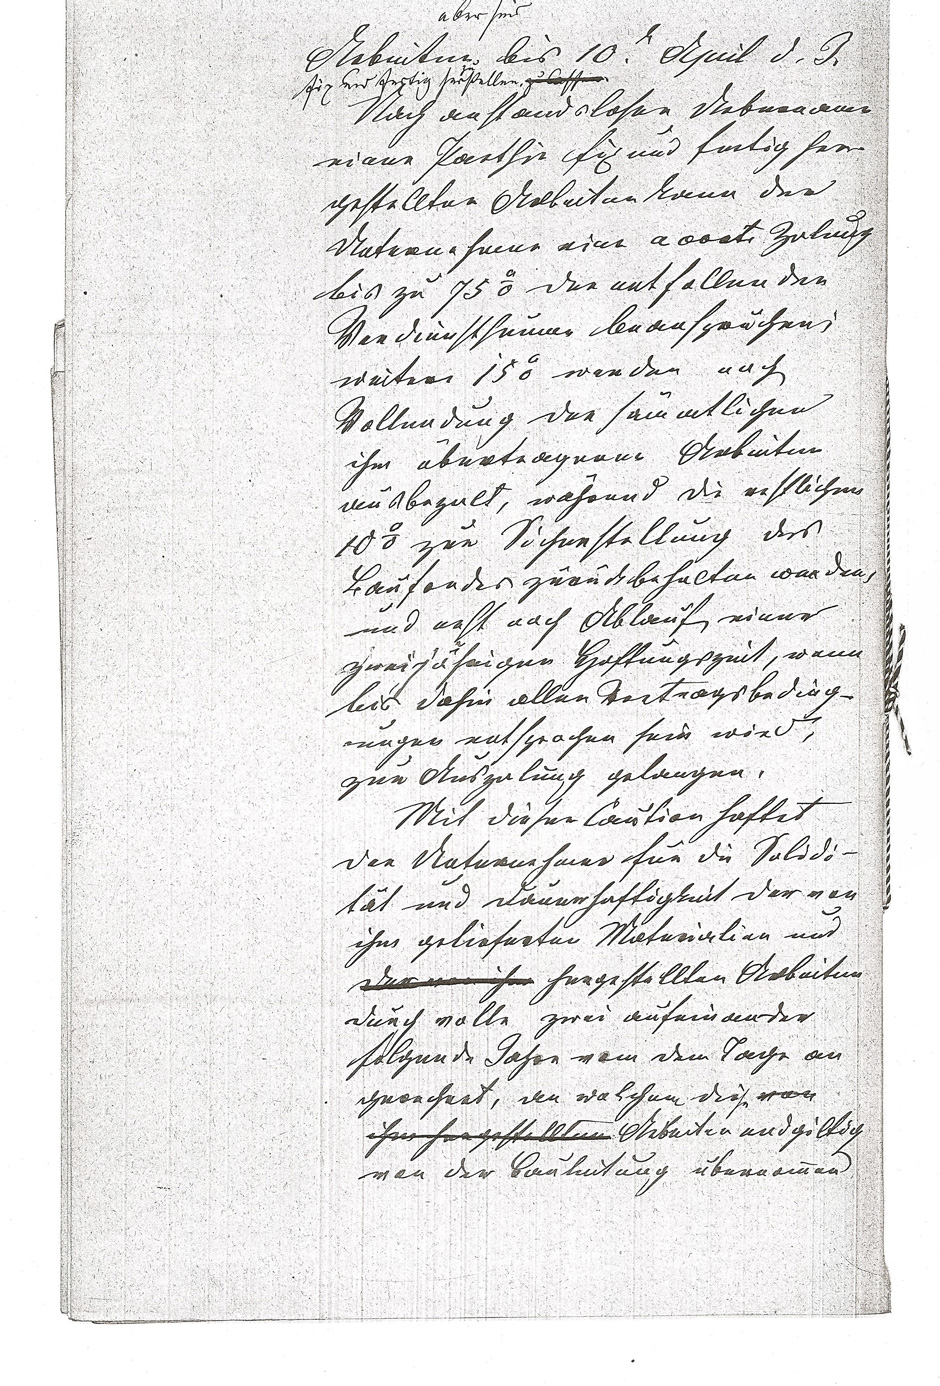 aber hin
Arbeiten, bis 10. April d. J.
fix und fertig herstellen. zu lassen.
Nach anstandsloser Uebername
einer Parthie fix und fertig her-
gestellter Arbeiten kann der
Unternehmer eine a conto Zalung
bis zu 75 % der entfallenden
Verdienstsumme beanspruchen;
weitere 15 % werden nach
Vollendung der sämmtlichen
ihm übertragenen Arbeiten
ausbezalt, während die restlichen
10 % zur Sicherstellung des
Baufondes zurückbehalten werden,
und erst nach Ablauf einer
zweijährigen Haftungszeit, wenn
bis dahin allen Vertragsbeding-
ungen entsprochen sein wird,
zur Auszalung gelangen.
Mit dieser Caution haftet
der Unternehmer für die Solidi-
tät und Dauerhaftigkeit der von
ihm gelieferten Materialien und
der von ihm hergestellten Arbeiten
durch volle zwei aufeinander
folgende Jahre von dem Tage an
gerechnet, an welchem die von
ihm hergestellten Arbeiten endgiltig
von der Bauleitung übernommen